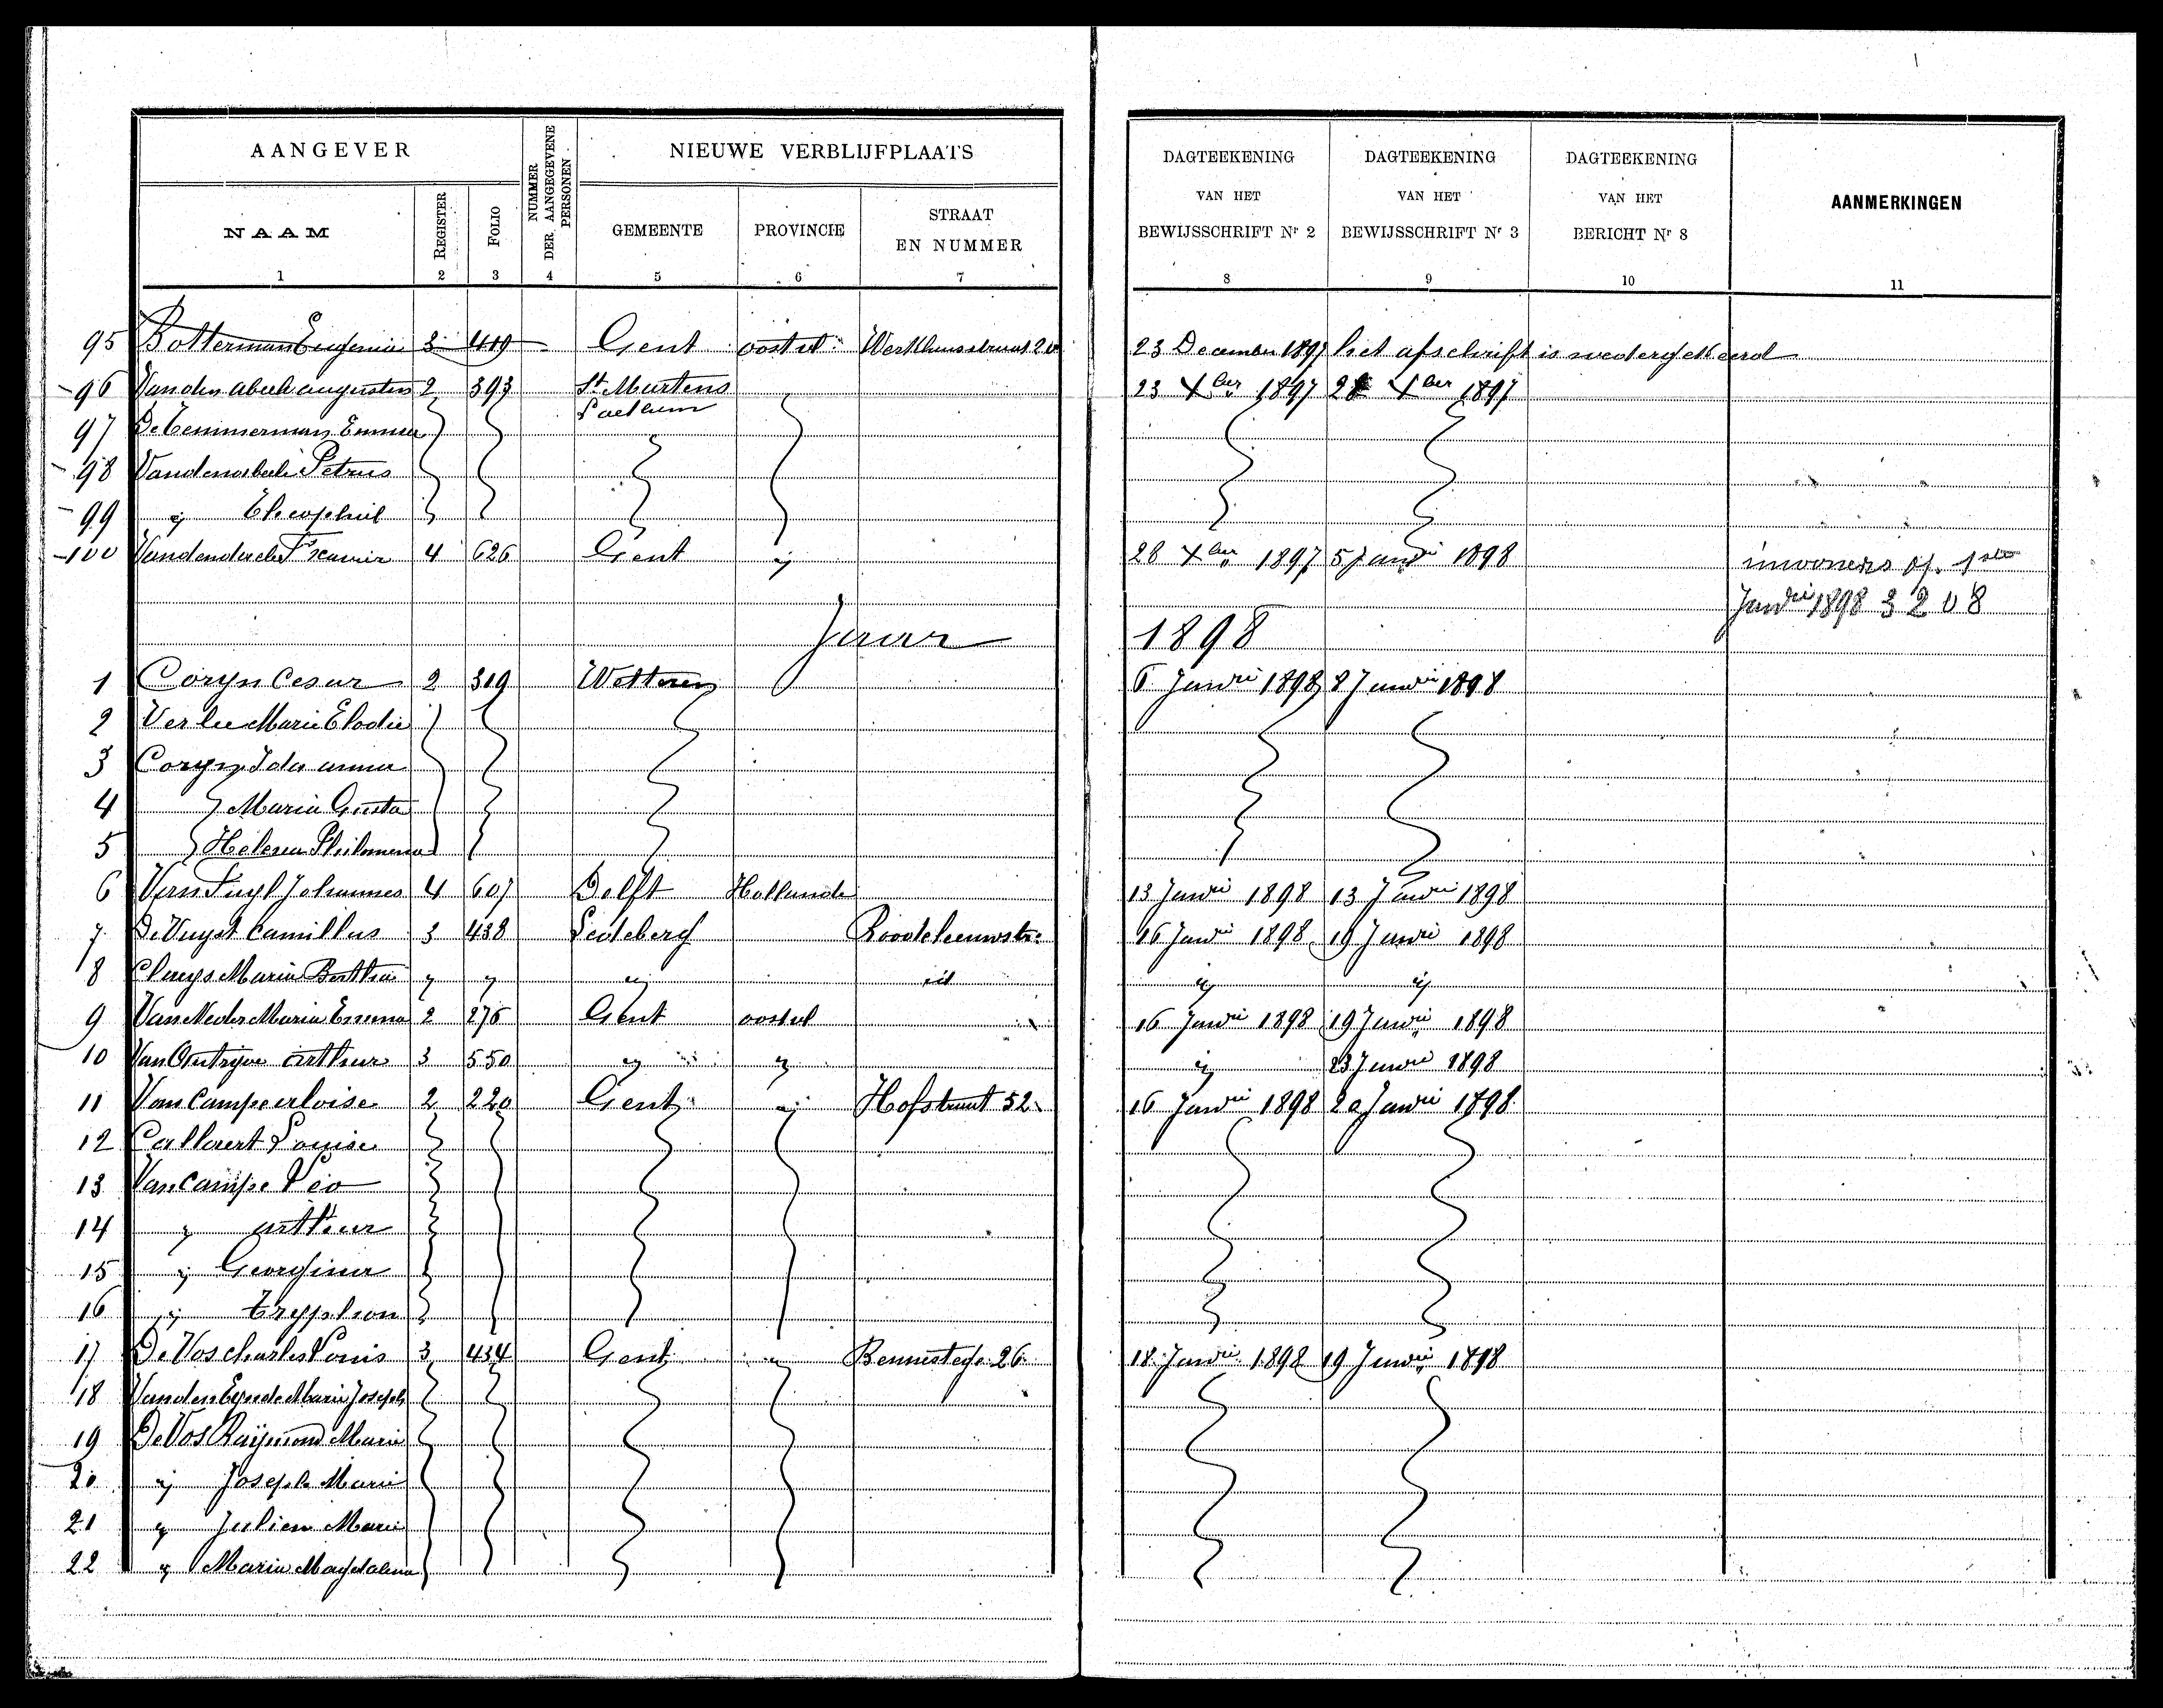 AANGEVER
NUMMER DER AANGEGEVENE PERSONEN
NIEUWE VERBLIJFPLAATS
DAGTEEKENING VAN HET BEWIJSSCHRIFT Nr 2
DAGTEEKENING VAN HET BEWIJSSCHRIFT Nr 3
DAGTEEKENING VAN HET BERICHT Nr 8
AANMERKINGEN
NAAM REGISTER FOLIO GEMEENTE PROVINCIE STRAAT EN NUMMER
1 2 3 4 5 6 7 8 9 10 11
95 Botterman Eugenie 3 419 Gent oostvl. 23 December 1897 het afschrift is wedergekeerd
96 Vanden abeele augusten 2 393 St Martens 23 Xber 1897 Xber 1897
Laethem
97 De Temmerman Emma
98 Vandenabeele Petrus
99 ij Theophiel
100 4 626 Gent ij 28 Xber 1897 5 Janrii 1898 inwoners op 1ste
Janrii 1898 3208
Jaar 1898
1 Coryn Cesar 2 319 Wetteren 6 Janrii 1898 8 Janrii 1898
2 Verlee Marie Elodie
3 Coryn Ida anna
4 Maria Gusta
5 Helena Philomena
6 Johannes 4 607 Delft Hollande 13 Janrii 1898 13 Janrii 1898
7 De Vuyst Camillus 3 438 Ledeberg Roodeleeuwstr. 16 Janrii 1898 19 Janrii 1898
8 Claeys Maria Bertha ij ij ij id ij ij
9 Maria Emma 2 276 Gent oostvl 16 Janrii 1898 19 Janrii 1898
10 Van Outryve arthur 3 550 ij ij ij 23 Janrii 1898
11 Van Campe aloise 2 220 Gent ij Hofstraat 52 16 Janrii 1898 20 Janrii 1898
12 Callaert Louise
13 Van Campe Léo
14 ij arthur
15 ij Georgina
16 ij tryphon
17 De Vos charles Louis 3 434 Gent ij Bennesteeg 26 18 Janrii 1898 19 Janrii 1898
18 Vanden Eynde Marie Joseph
19 De Vos Raijmond Marie
20 ij Joseph Marie
21 ij Julien Marie
22 ij Maria Magdalena